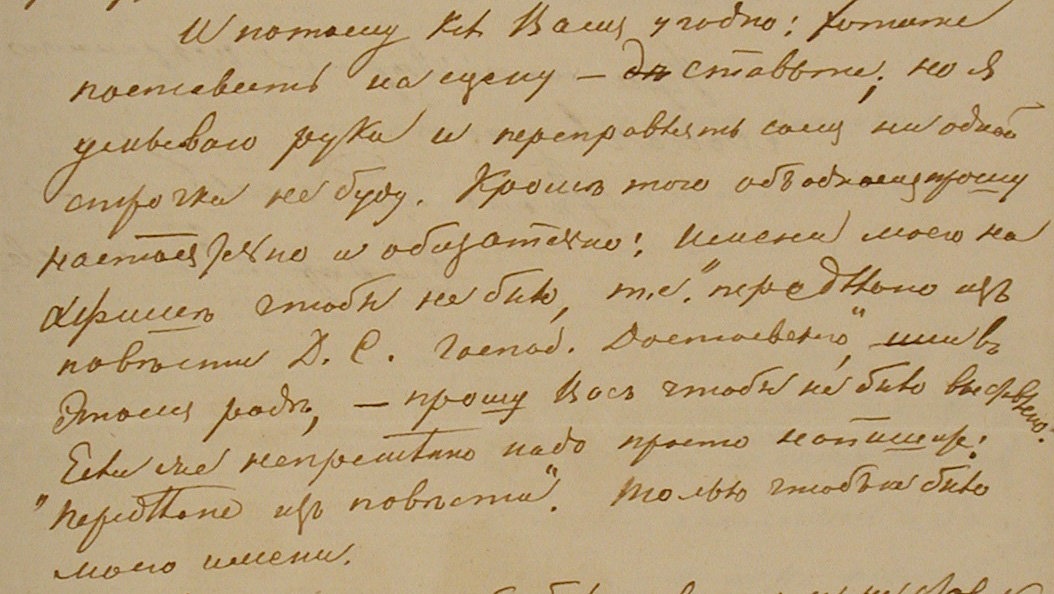 И потому какъ Вамъ угодно: хотите
поставить на сцену — ставьте; но я
умываю руки и переправлять самъ ни одной
строчки не буду. Кромѣ того объ одномъ прошу
настоятельно и обязательно: имени моего на
афишѣ чтобы не было, т. е. "передѣлано изъ
повѣсти Д. С. Господ. Достоевскаго", или въ
этомъ родѣ, — прошу Васъ чтобы не было выставлено.
Если же непремѣнно надо просто напишите:
"Передѣлано изъ повѣсти". Только чтобъ не было
моего имени.